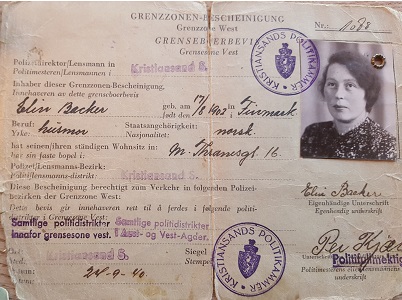 GRENZZONEN-BESCHEINIGUNG
Grenzzone West
GRENSEBOERBEVIS
Grensesone Vest
Nr.: 1088
Polizeidirektor/Lensmann in
Politimesteren/Lensmannen i
Kristiansand S.
Inhaber dieser Grenzzonen-Bescheinigung,
Innehaveren av dette grenseboerbevis
Elin Backer
geb. am
født den
17/8 1905
in
i
Beruf:
Yrke:
husmor
Staatsangehörigkeit:
Nasjonalitet:
norsk
hat seinen/ihren ständigen Wohnsitz in:
har sin faste bopel i:
M. Thranesgt 16
Polizei/Lensmanns-Bezirk:
Politi/lensmanns-distrikt:
Kristiansand S.
Diese Bescheinigung berechtigt zum Verkehr in folgenden Polizei-
bezirken der Grenzzone West:
Dette bevis gir innehaveren rett til å ferdes i følgende politi-
Vest:
Samtlige politidistrikter
innafor grensesone vest.
Samtlige politidistrikter
i Aust- og Vest-Agder.
Kristiansand S.
24-9-40.
Siegel
Stempel
KRISTIANSANDS POLITIKAMMER
KRISTIANSANDS POLITIKAMMER
Elin Backer
Eigenhändige Unterschrift
Egenhendig underskrift
Per
underskrift